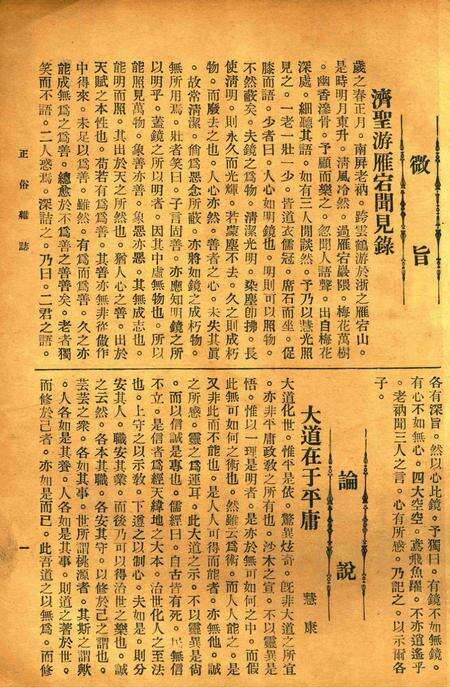 微旨
濟聖游雁宕聞見錄
歲之春正月。南屏老衲。跨雲鶴游於浙之雁宕山。
是時明月東升。清風冷然。過雁宕巖隈。梅花萬樹
。幽香滲骨。予顧而樂之。忽聞人語聲。出自梅花
深處。細聽其語。如有三人閒談然。予乃以慧光照
見之。一老一壯一少。皆道衣儒冠。席石而坐。促
膝而語。少者曰。人心如明鏡也。明則可以照物。
不然蔽矣。夫鏡之爲物。清潔光明。染塵卽拂。長
使清明。則永久而光輝。若蒙塵不去。久之則成朽
物。而廢去之也。人心亦然。善者之心。未失其眞
。故常清潔。倘爲惡念所蔽。亦將如鏡之成朽物。
無所用焉。壯者笑曰。子言固善。亦應知明鏡之所
以明乎。蓋鏡之所以明者。因其中虛無物也。所以
能照見萬物。象善亦善。象惡亦惡。其無成志也。
能明而照。其出於天之所然也。猶人心之善。出於
天賦之本性也。苟若有爲爲善。其善亦無非從做作
中得來。未足以爲善。雖然。有爲而爲善。久之亦
能成無爲之爲善。總愈於不爲善之善矣。老者獨
笑而不語。二人惑焉。深詰之。乃曰。二君之語。
各有深旨。然以心比鏡。予獨曰。有鏡不如無鏡。
有心不如無心。四大空空。鳶飛魚躍。不亦逍遙乎
。老衲聞三人之言。心有所感。乃記之。以示爾各
子。
論說
大道在于平庸
慧康
大道化世。惟平是依。驚異炫奇。旣非大道之所宜
。亦非平庸政敎之所有也。沙木之宣。不以靈異是
悟。惟以一理是明者。是亦於無可如何之中。而假
此無可如何之術也。然雖云爲術。而人人能之。是
又非此而不能也。是人人可得而能者。亦無他。誠
之所感。靈之爲運耳。此大道之示。不以靈異是尙
。而以信誠是專也。儒經曰。自古皆有死。民無信
不立。是信者爲經天緯地之大本。治世化人之至法
也。上守之以示敎。下遵之以制心。夫如是。則分
安其人。職安其業。而後乃可以得治世之樂也。誠
之云然。各本其職。各安其守。以修於己之謂也。
芸芸之衆。各如其事。世所謂桃源者。其斯之謂歟
。人各如是其養。人各如是其事。則道之著於世。
而修於己者。亦如是而已。此吾道之以無爲。而修
正俗雜誌
一